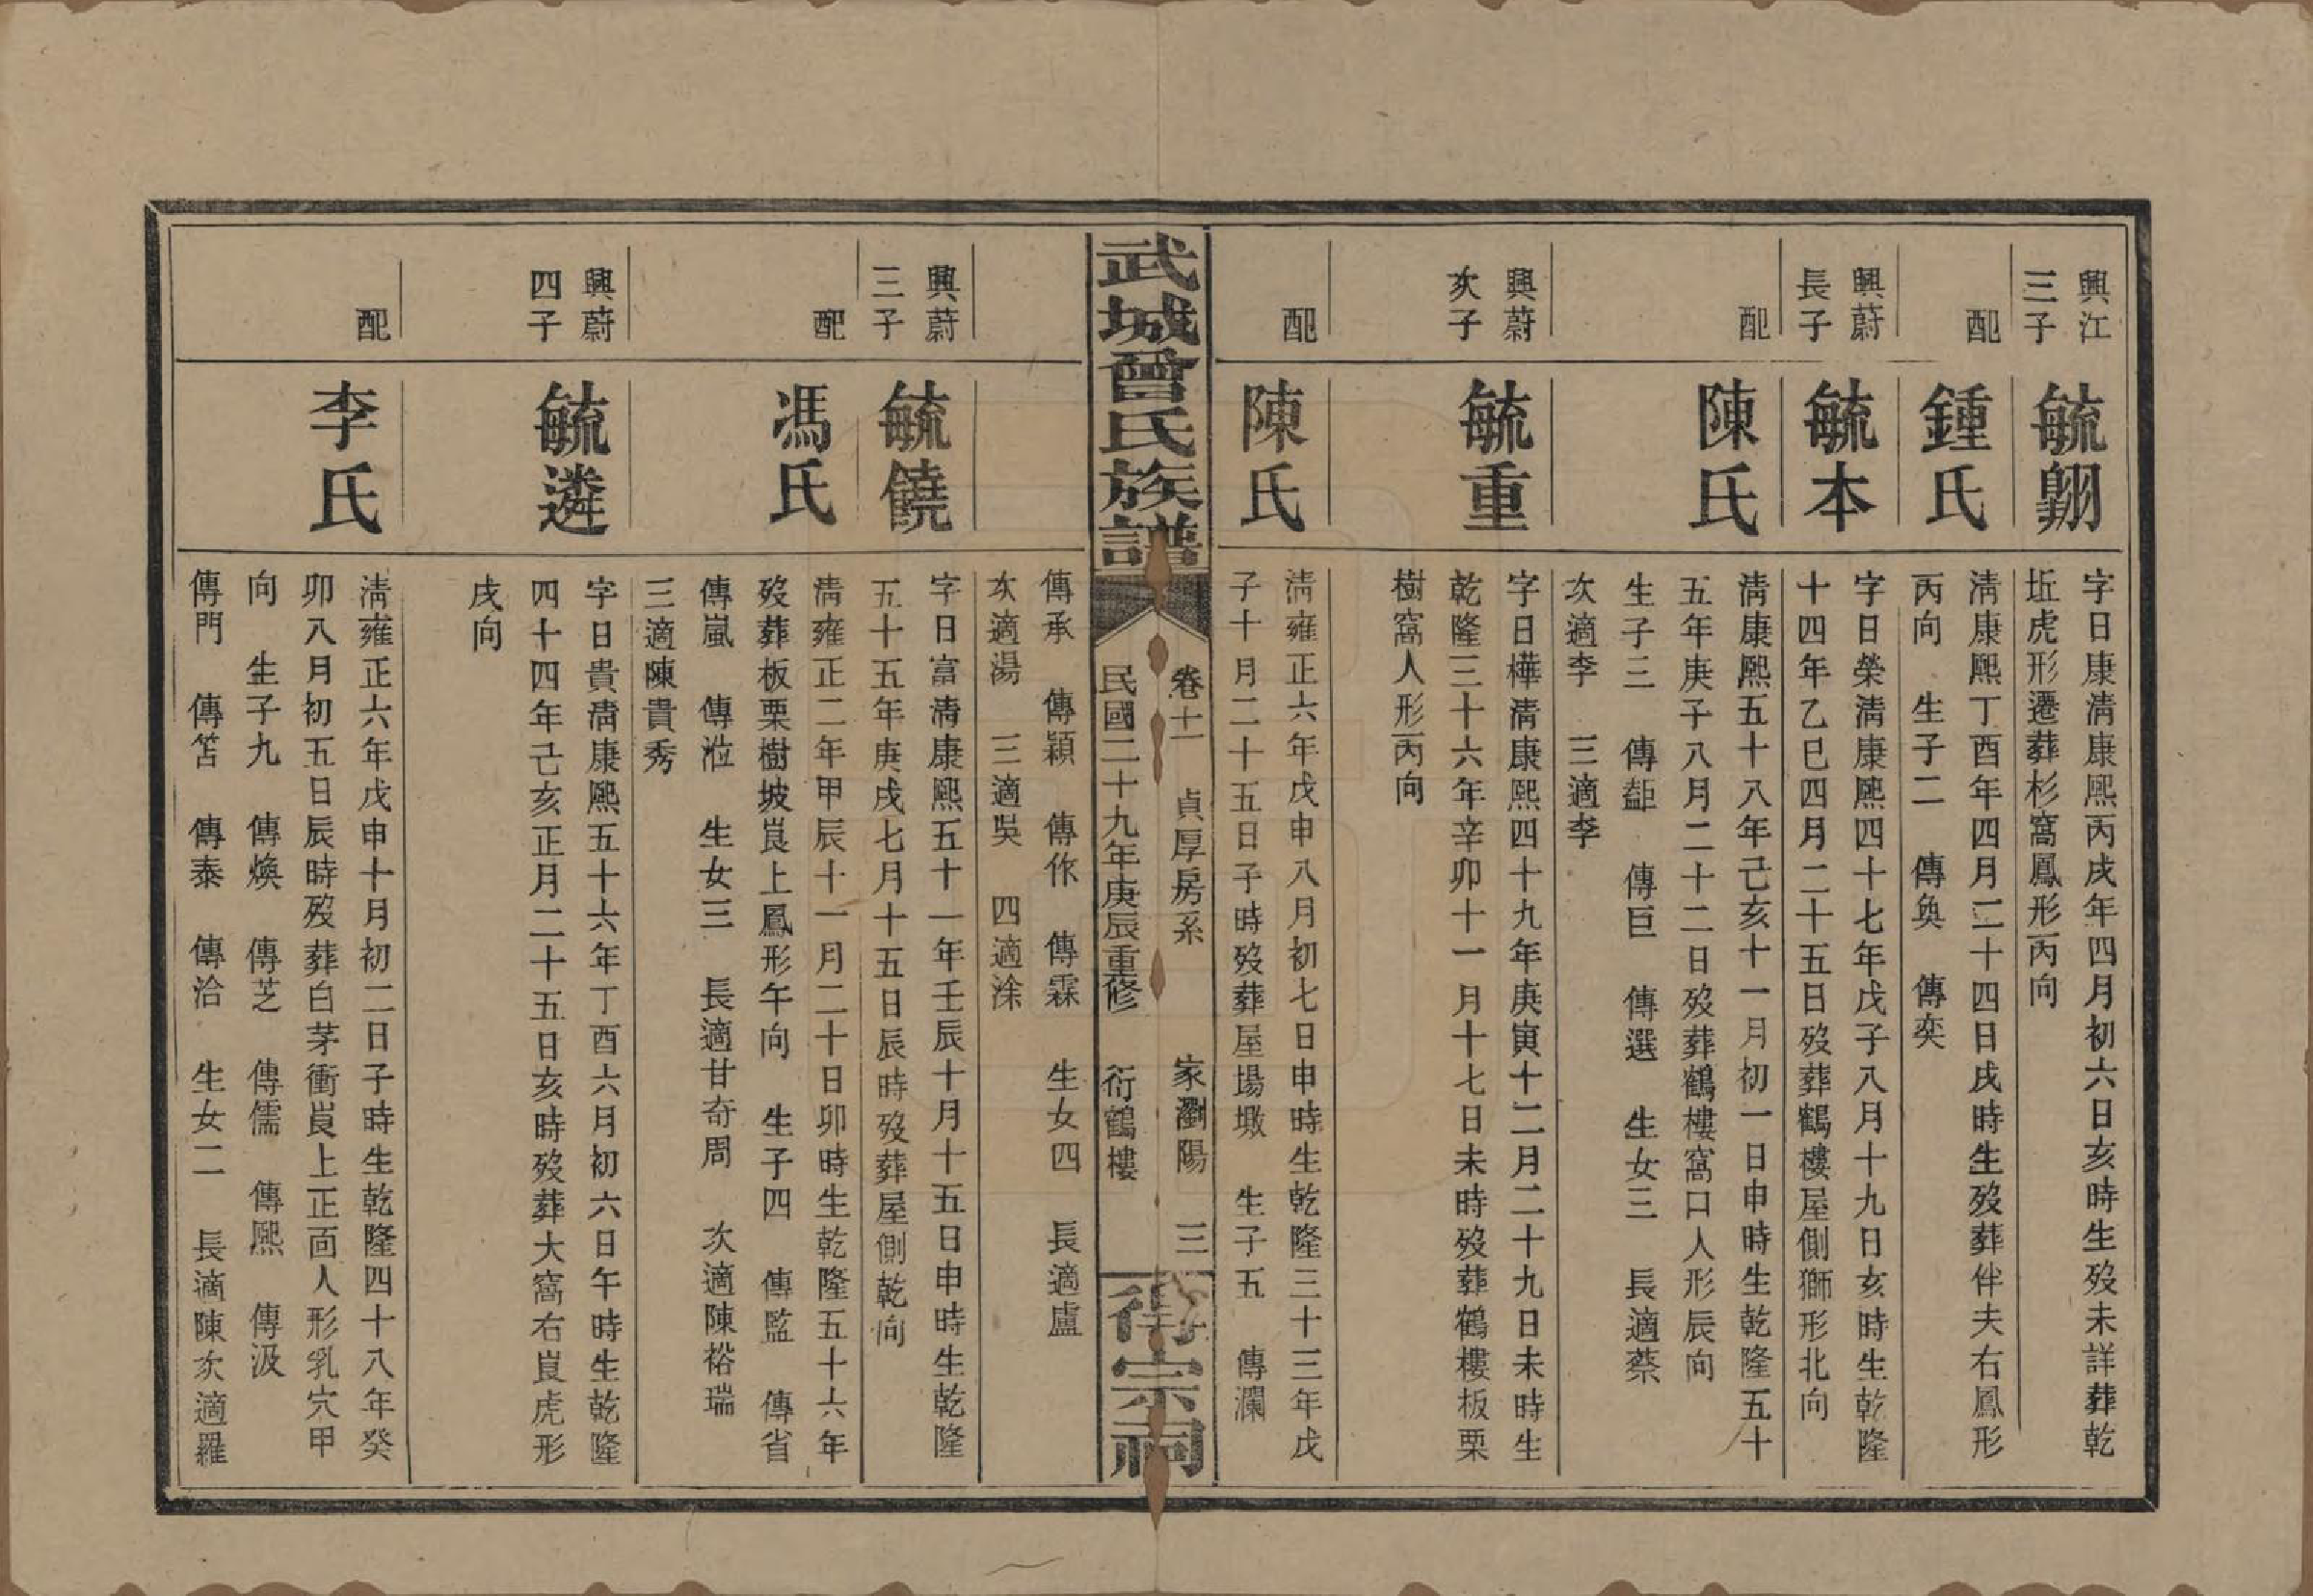 興江
三子
毓翶
字日康清康熙丙戌年四月初六日亥時生歿未詳葬乾
坵虎形遷葬杉窩鳳形丙向
配
鍾氏
清康熙丁酉年四月二十四日戌時生歿葬伴夫右鳳形
丙向 生子二 傳奐 傳奕
興蔚
長子
毓本
字日榮清康熙四十七年戊子八月十九日亥時生乾隆
十四年乙巳四月二十五日歿葬鶴樓屋側獅形北向
配
陳氏
清康熙五十八年己亥十一月初一日申時生乾隆五十
五年庚子八月二十二日歿葬鶴樓窩口人形辰向
生子三 傳 傳巨 傳選 生女三 長適蔡
次適李 三適李
興蔚
次子
毓重
字日樺清康熙四十九年庚寅十二月二十九日未時生
乾隆三十六年辛卯十一月十七日未時歿葬鶴樓板栗
樹窩人形丙向
配
陳氏
清雍正六年戊申八月初七日申時生乾隆三十三年戊
子十月二十五日子時歿葬屋場墩 生子五 傳瀾
武城曾氏族譜
卷十一 貞厚房系 家瀏陽 三
民國二十九年庚辰重修 衍鶴樓
宗祠
傳承 傳穎 傳作 傳霖 生女四 長適盧
次適湯 三適吳 四適涂
興蔚
三子
毓饒
字日富清康熙五十一年壬辰十月十五日申時生乾隆
五十五年庚戌七月十五日辰時歿葬屋側乾向
配
馮氏
清雍正二年甲辰十一月二十日卯時生乾隆五十六年
歿葬板栗樹坡峎上鳳形午向 生子四 傳監 傳省
傳嵐 傳涖 生女三 長適甘奇周 次適陳裕瑞
三適陳貴秀
興蔚
四子
毓遴
字日貴清康熙五十六年丁酉六月初六日午時生乾隆
四十四年己亥正月二十五日亥時歿葬大窩右峎虎形
戌向
配
李氏
清雍正六年戊申十月初二日子時生乾隆四十八年癸
卯八月初五日辰時歿葬白茅衝峎上正面人形乳穴甲
向 生子九 傳煥 傳芝 傳儒 傳熙 傳汲
傳門 傳笘 傳泰 傳洽 生女二 長適陳次適羅